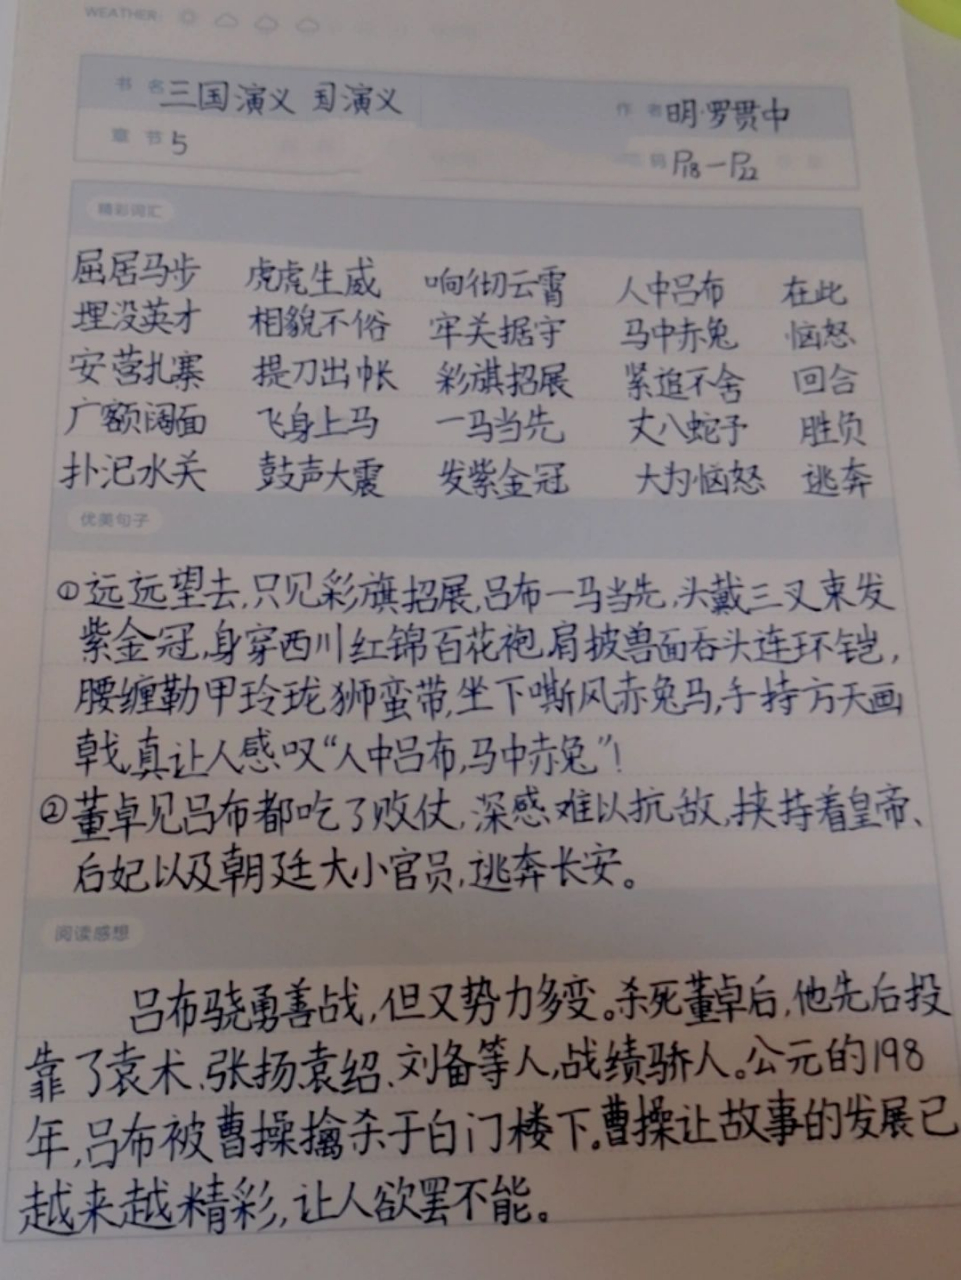 WEATHER
书名 三国演义 国演义 作者 明·罗贯中
章节 5 页码 P18-P22
精彩词汇
屈居马步 虎虎生威 响彻云霄 人中吕布 在此
埋没英才 相貌不俗 牢关据守 马中赤兔 恼怒
安营扎寨 提刀出帐 彩旗招展 紧追不舍 回合
广额阔面 飞身上马 一马当先 丈八蛇予 胜负
扑汜水关 鼓声大震 发紫金冠 大为恼怒 逃奔
优美句子
①远远望去,只见彩旗招展,吕布一马当先,头戴三叉束发
紫金冠,身穿西川红锦百花袍,肩披兽面吞头连环铠,
腰缠勒甲玲珑狮蛮带,坐下嘶风赤兔马,手持方天画
戟,真让人感叹“人中吕布,马中赤兔”!
②董卓见吕布都吃了败仗,深感难以抗敌,挟持着皇帝、
后妃以及朝廷大小官员,逃奔长安。
阅读感想
吕布骁勇善战,但又势力多变。杀死董卓后,他先后投
靠了袁术、张扬袁绍、刘备等人,战绩骄人。公元的198
年,吕布被曹操擒杀于白门楼下。曹操让故事的发展已
越来越精彩,让人欲罢不能。